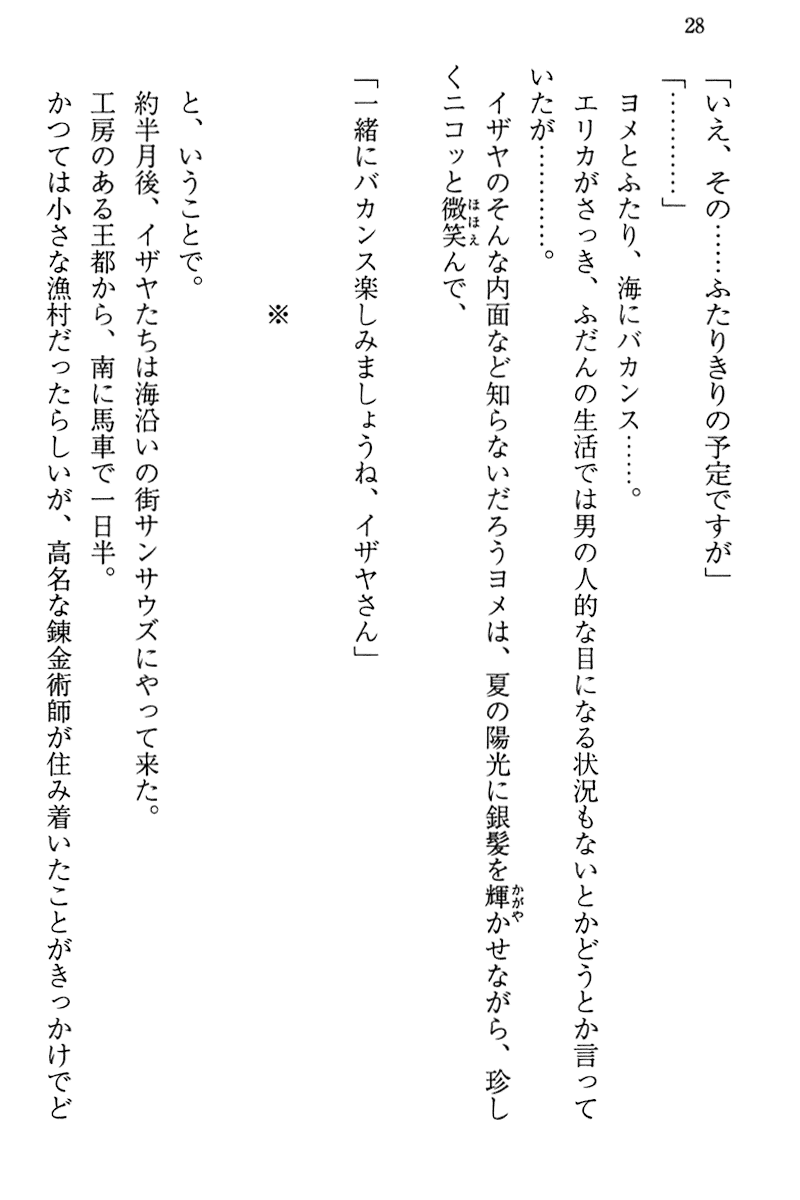 28
「いえ、その……ふたりきりの予定ですが」
「…………」
ヨメとふたり、海にバカンス……。
エリカがさっき、ふだんの生活では男の人的な目になる状況もないとかどうとか言って
いたが…………。
イザヤのそんな内面など知らないだろうヨメは、夏の陽光に銀髪を輝かせながら、珍し
くニコッと微笑んで、
「一緒にバカンス楽しみましょうね、イザヤさん」
※
と、いうことで。
約半月後、イザヤたちは海沿いの街サンサウズにやって来た。
工房のある王都から、南に馬車で一日半。
かつては小さな漁村だったらしいが、高名な錬金術師が住み着いたことがきっかけでど